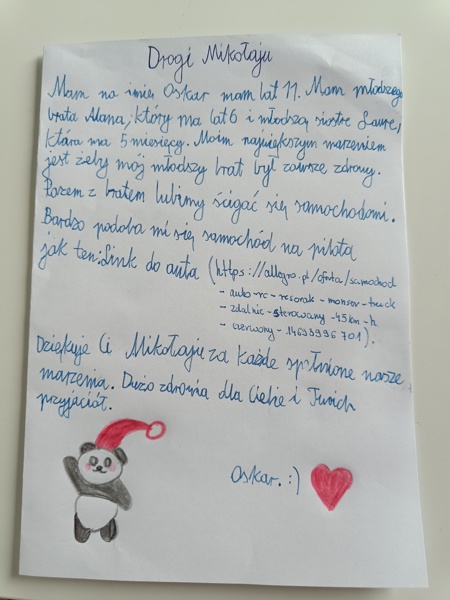 Drogi Mikołaju
Mam na imię Oskar mam lat 11. Mam młodszego
brata Alana, który ma lat 6 i młodszą siostrę Laurę,
która ma 5 miesięcy. Moim największym marzeniem
jest żeby mój młodszy brat był zawsze zdrowy.
Razem z bratem lubimy ścigać się samochodami.
Bardzo podoba mi się samochód na pilota
jak ten: Link do auta (https://allegro.pl/oferta/samochod
- auto-rc-resorak-monster-truck
- zdalnie-sterowany-45km-h
- czerwony-14693996701).
Dziękuję Ci Mikołaju za każde spełnione nasze
marzenia. Dużo zdrowia dla Ciebie i Twoich
przyjaciół.
Oskar. :)